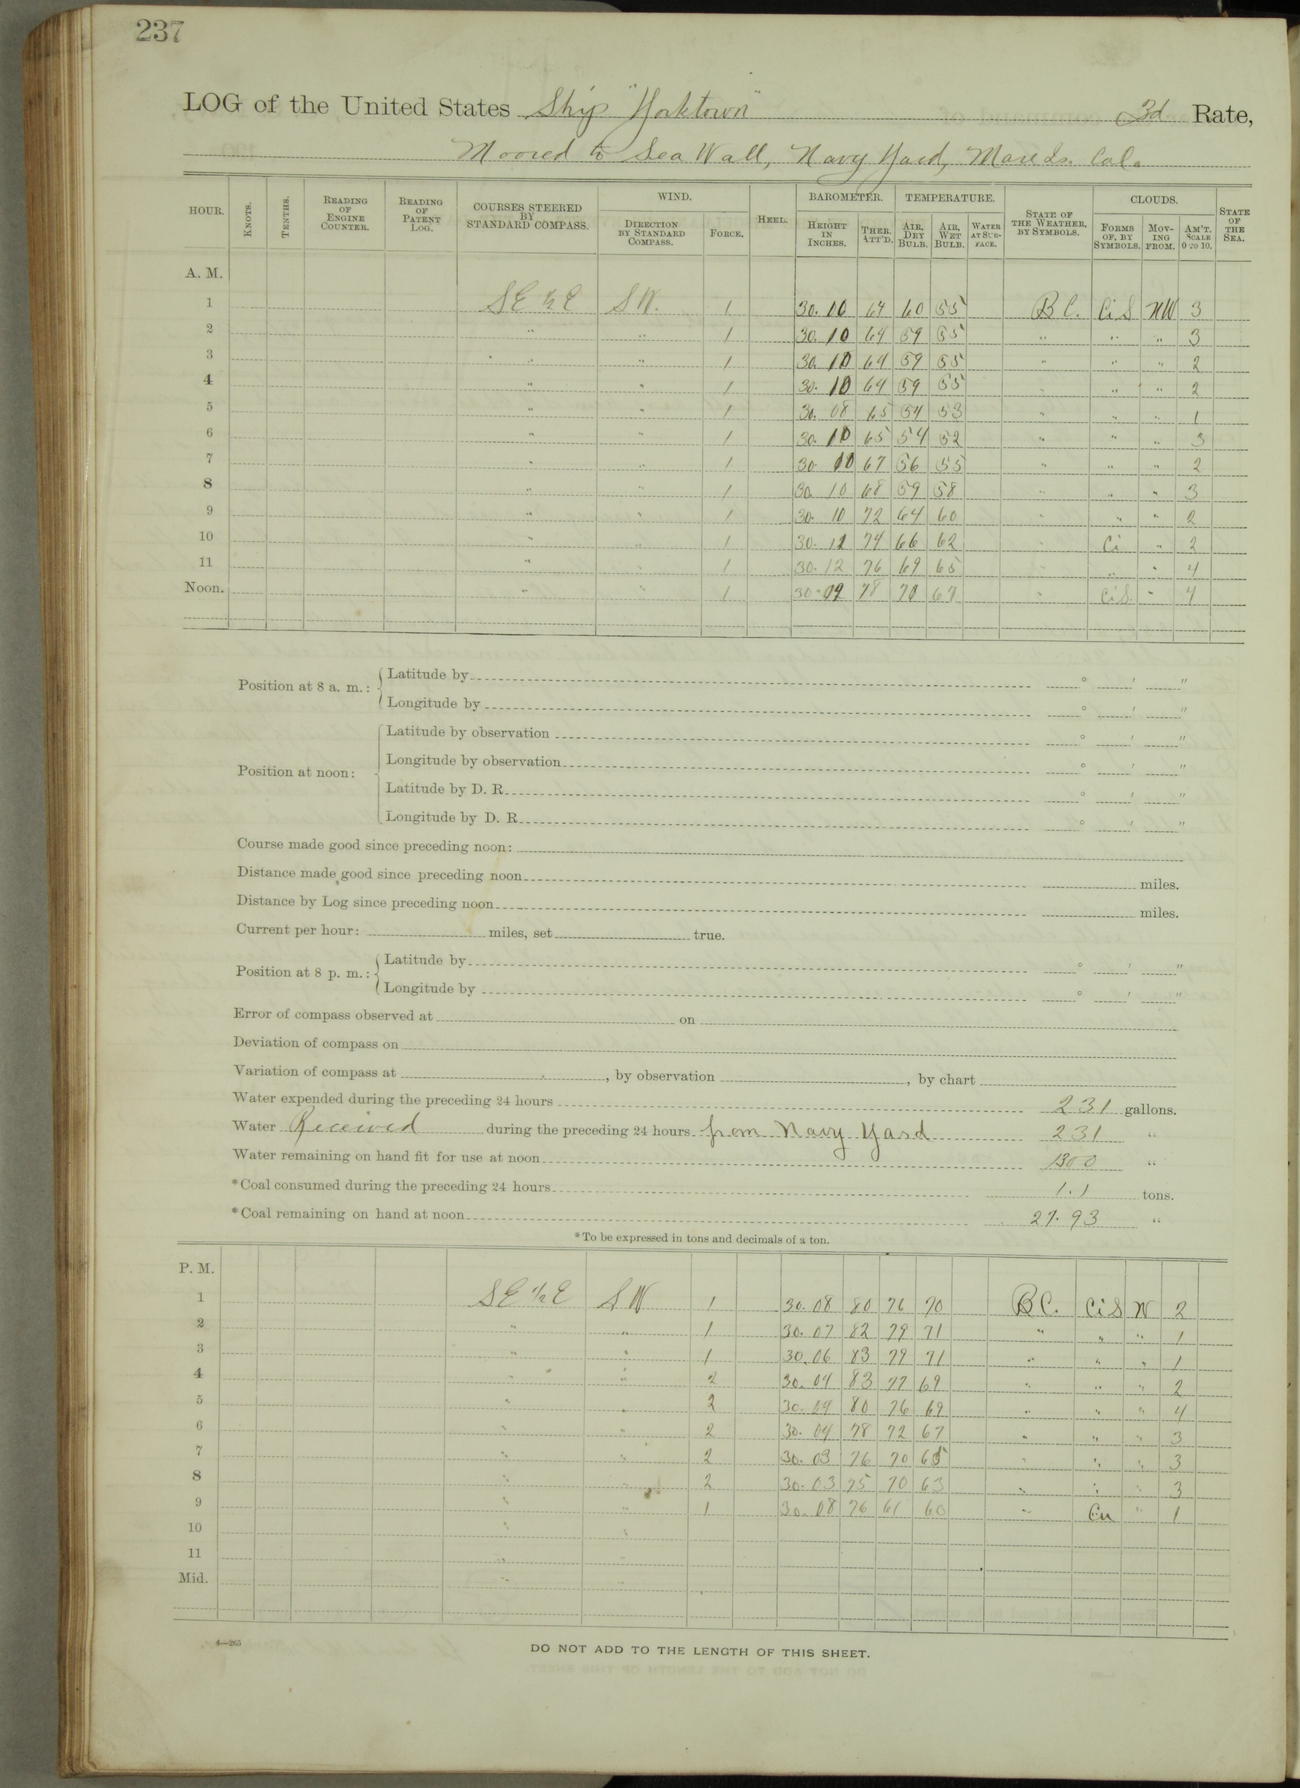 237
LOG of the United States Ship "Yorktown" 3d Rate,
Moored to Sea Wall, Navy Yard, Mare Is. Cal.
HOUR. KNOTS. TENTHS. READING OF ENGINE COUNTER. READING OF PATENT LOG. COURSES STEERED BY STANDARD COMPASS. WIND. DIRECTION BY STANDARD COMPASS. FORCE. HEEL. BAROMETER. HEIGHT IN INCHES. THER. ATT'D. TEMPERATURE. AIR, DRY BULB. AIR, WET BULB. WATER AT SURFACE. STATE OF THE WEATHER, BY SYMBOLS. CLOUDS. FORMS OF, BY SYMBOLS. MOVING FROM. AM'T. SCALE 0 TO 10. STATE OF THE SEA.
A. M.
1 SE ½ E SW. 1 30.10 64 60 55 B C. CiS NW 3
2 " " 1 30.10 64 59 55 " " " 3
3 " " 1 30.10 64 59 55 " " " 2
4 " " 1 30.10 64 59 55 " " " 2
5 " " 1 30.08 65 54 53 " " " 1
6 " " 1 30.10 65 54 52 " " " 3
7 " " 1 30.10 67 56 55 " " " 2
8 " " 1 30.10 68 59 58 " " " 3
9 " " 1 30.10 72 64 60 " " " 2
10 " " 1 30.12 74 66 62 " Ci " 2
11 " " 1 30.12 76 69 65 " " " 4
Noon. " " 1 30.09 78 70 67 " CiS " 4
Position at 8 a. m.: Latitude by ° ′ ″
Longitude by ° ′ ″
Position at noon: Latitude by observation ° ′ ″
Longitude by observation ° ′ ″
Latitude by D. R. ° ′ ″
Longitude by D. R. ° ′ ″
Course made good since preceding noon:
Distance made good since preceding noon miles.
Distance by Log since preceding noon miles.
Current per hour: miles, set true.
Position at 8 p. m.: Latitude by ° ′ ″
Longitude by ° ′ ″
Error of compass observed at on
Deviation of compass on
Variation of compass at , by observation , by chart
Water expended during the preceding 24 hours 231 gallons.
Water Received during the preceding 24 hours from Navy Yard 231 "
Water remaining on hand fit for use at noon 1300 "
*Coal consumed during the preceding 24 hours 1.1 tons.
*Coal remaining on hand at noon 27.93 "
*To be expressed in tons and decimals of a ton.
P. M.
1 SE ½ E SW 1 30.08 80 76 70 B C. CiS W 2
2 " " 1 30.07 82 79 71 " " " 1
3 " " 1 30.06 83 79 71 " " " 1
4 " " 2 30.04 83 77 69 " " " 2
5 " " 2 30.04 80 76 69 " " " 4
6 " " 2 30.04 78 72 67 " " " 3
7 " " 2 30.03 76 70 65 " " " 3
8 " " 2 30.03 75 70 63 " " " 3
9 " " 1 30.08 76 61 60 " Cu " 1
10 " "
11 "
Mid. "
4—265
DO NOT ADD TO THE LENGTH OF THIS SHEET.